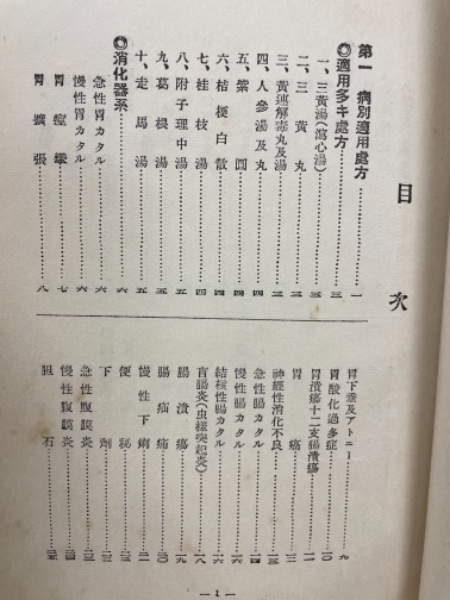 目次
第一 病別適用處方……一
◎適用多キ處方……三
一、三黄湯(瀉心湯)……三
二、三黄丸……三
三、黄連解毒丸及湯……三
四、人參湯及丸……四
五、紫圓……四
六、桔梗白散……四
七、桂枝湯……四
八、附子理中湯……五
九、葛根湯……五
十、走馬湯……五
◎消化器系……六
急性胃カタル……六
慢性胃カタル……六
胃痙攣……七
胃擴張……八
胃下垂及アトニー……九
胃酸化過多症……一〇
胃潰瘍十二支腸潰瘍……一一
胃癌……一三
神經性消化不良……一三
急性腸カタル……一四
慢性腸カタル……一六
結核性腸カタル……一六
盲腸炎(虫樣突起炎)……一八
腸潰瘍……一九
腸疝痛……二〇
慢性下痢……二一
便秘……二三
下劑……二三
急性腹膜炎……二三
慢性腹膜炎……二四
膽石……二五
— 1 —